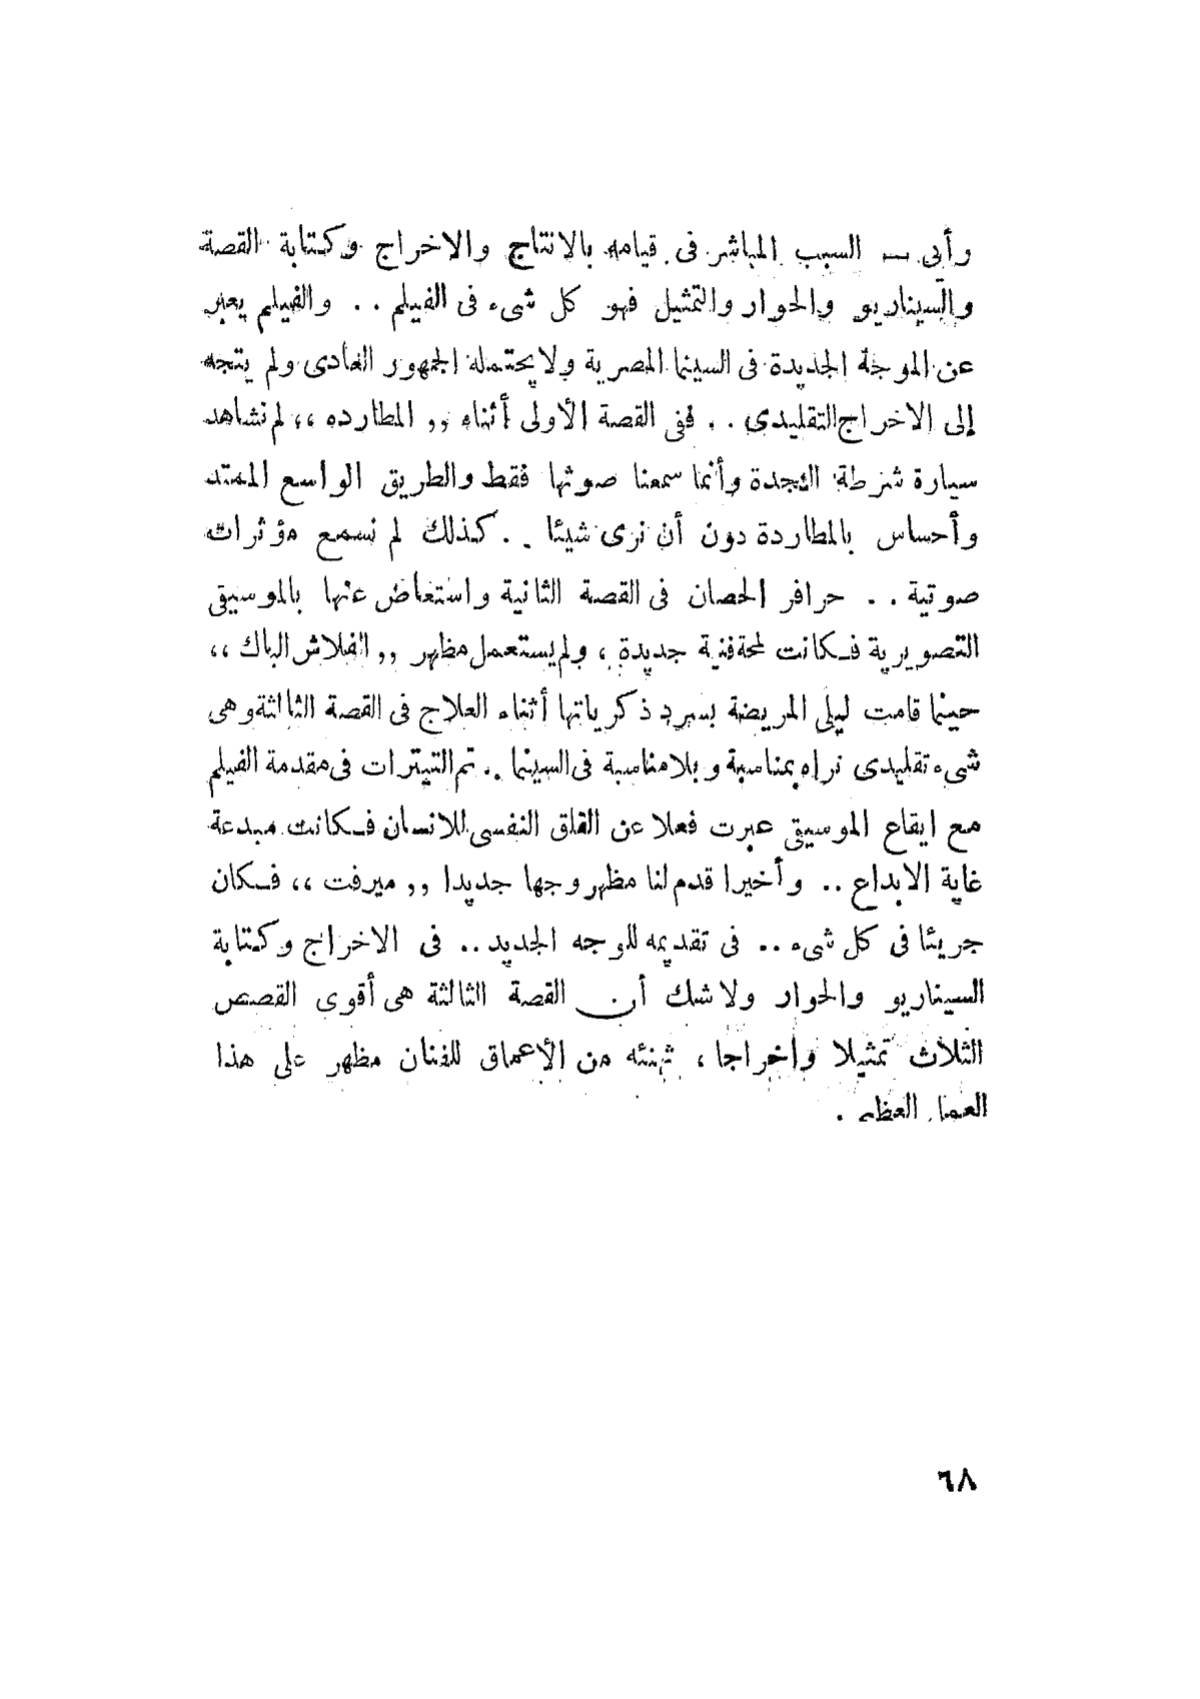 وأبى — السبب المباشر فى قيامه بالانتاج والاخراج وكتابة القصة
والسيناريو والحوار والتمثيل فهو كل شىء فى الفيلم . . والفيلم يعبر
عن الموجة الجديدة فى السينما المصرية ولا يحتمله الجمهور العادى ولم يتجه
إلى الاخراج التقليدى . . ففى القصة الأولى أثناء ,, المطارده ،، لم نشاهد
سيارة شرطة النجدة وأنما سمعنا صوتها فقط والطريق الواسع الممتد
وأحساس بالمطاردة دون أن نرى شيئا . . كذلك لم نسمع مؤثرات
صوتية . . حرافر الحصان فى القصة الثانية واستعاض عنها بالموسيقى
التصويرية فكانت لمحة فنية جديدة ، ولم يستعمل مظهر ,, الفلاش الباك ،،
حينما قامت ليلى المريضة بسرد ذكرياتها أثناء العلاج فى القصة الثالثة وهى
شىء تقليدى نراه بمناسبة وبلا مناسبة فى السينما . . تم التيترات فى مقدمة الفيلم
مع ايقاع الموسيقى عبرت فعلا عن القلق النفسى للانسان فكانت مبدعة
غاية الابداع .. وأخيرا قدم لنا مظهر وجها جديدا ,, ميرفت ،، فكان
جريئا فى كل شىء .. فى تقديمه للوجه الجديد .. فى الاخراج وكتابة
السيناريو والحوار ولا شك أن القصة الثالثة هى أقوى القصص
الثلاث تمثيلا واخراجا ، نهنئه من الأعماق للفنان مظهر على هذا
العمل العظيم .
٦٨